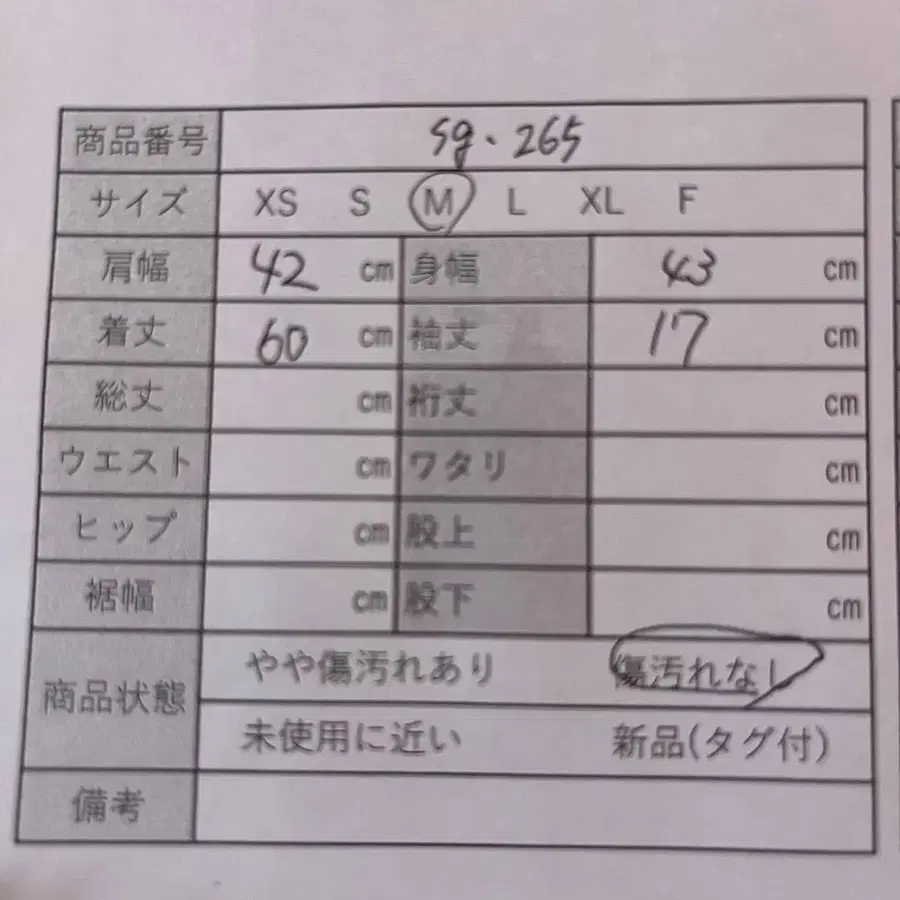 商品番号 sg・265
サイズ XS S M L XL F
肩幅 42 cm 身幅 43 cm
着丈 60 cm 袖丈 17 cm
総丈 cm 裄丈 cm
ウエスト cm ワタリ cm
ヒップ cm 股上 cm
裾幅 cm 股下 cm
商品状態 やや傷汚れあり 傷汚れなし
未使用に近い 新品(タグ付)
備考